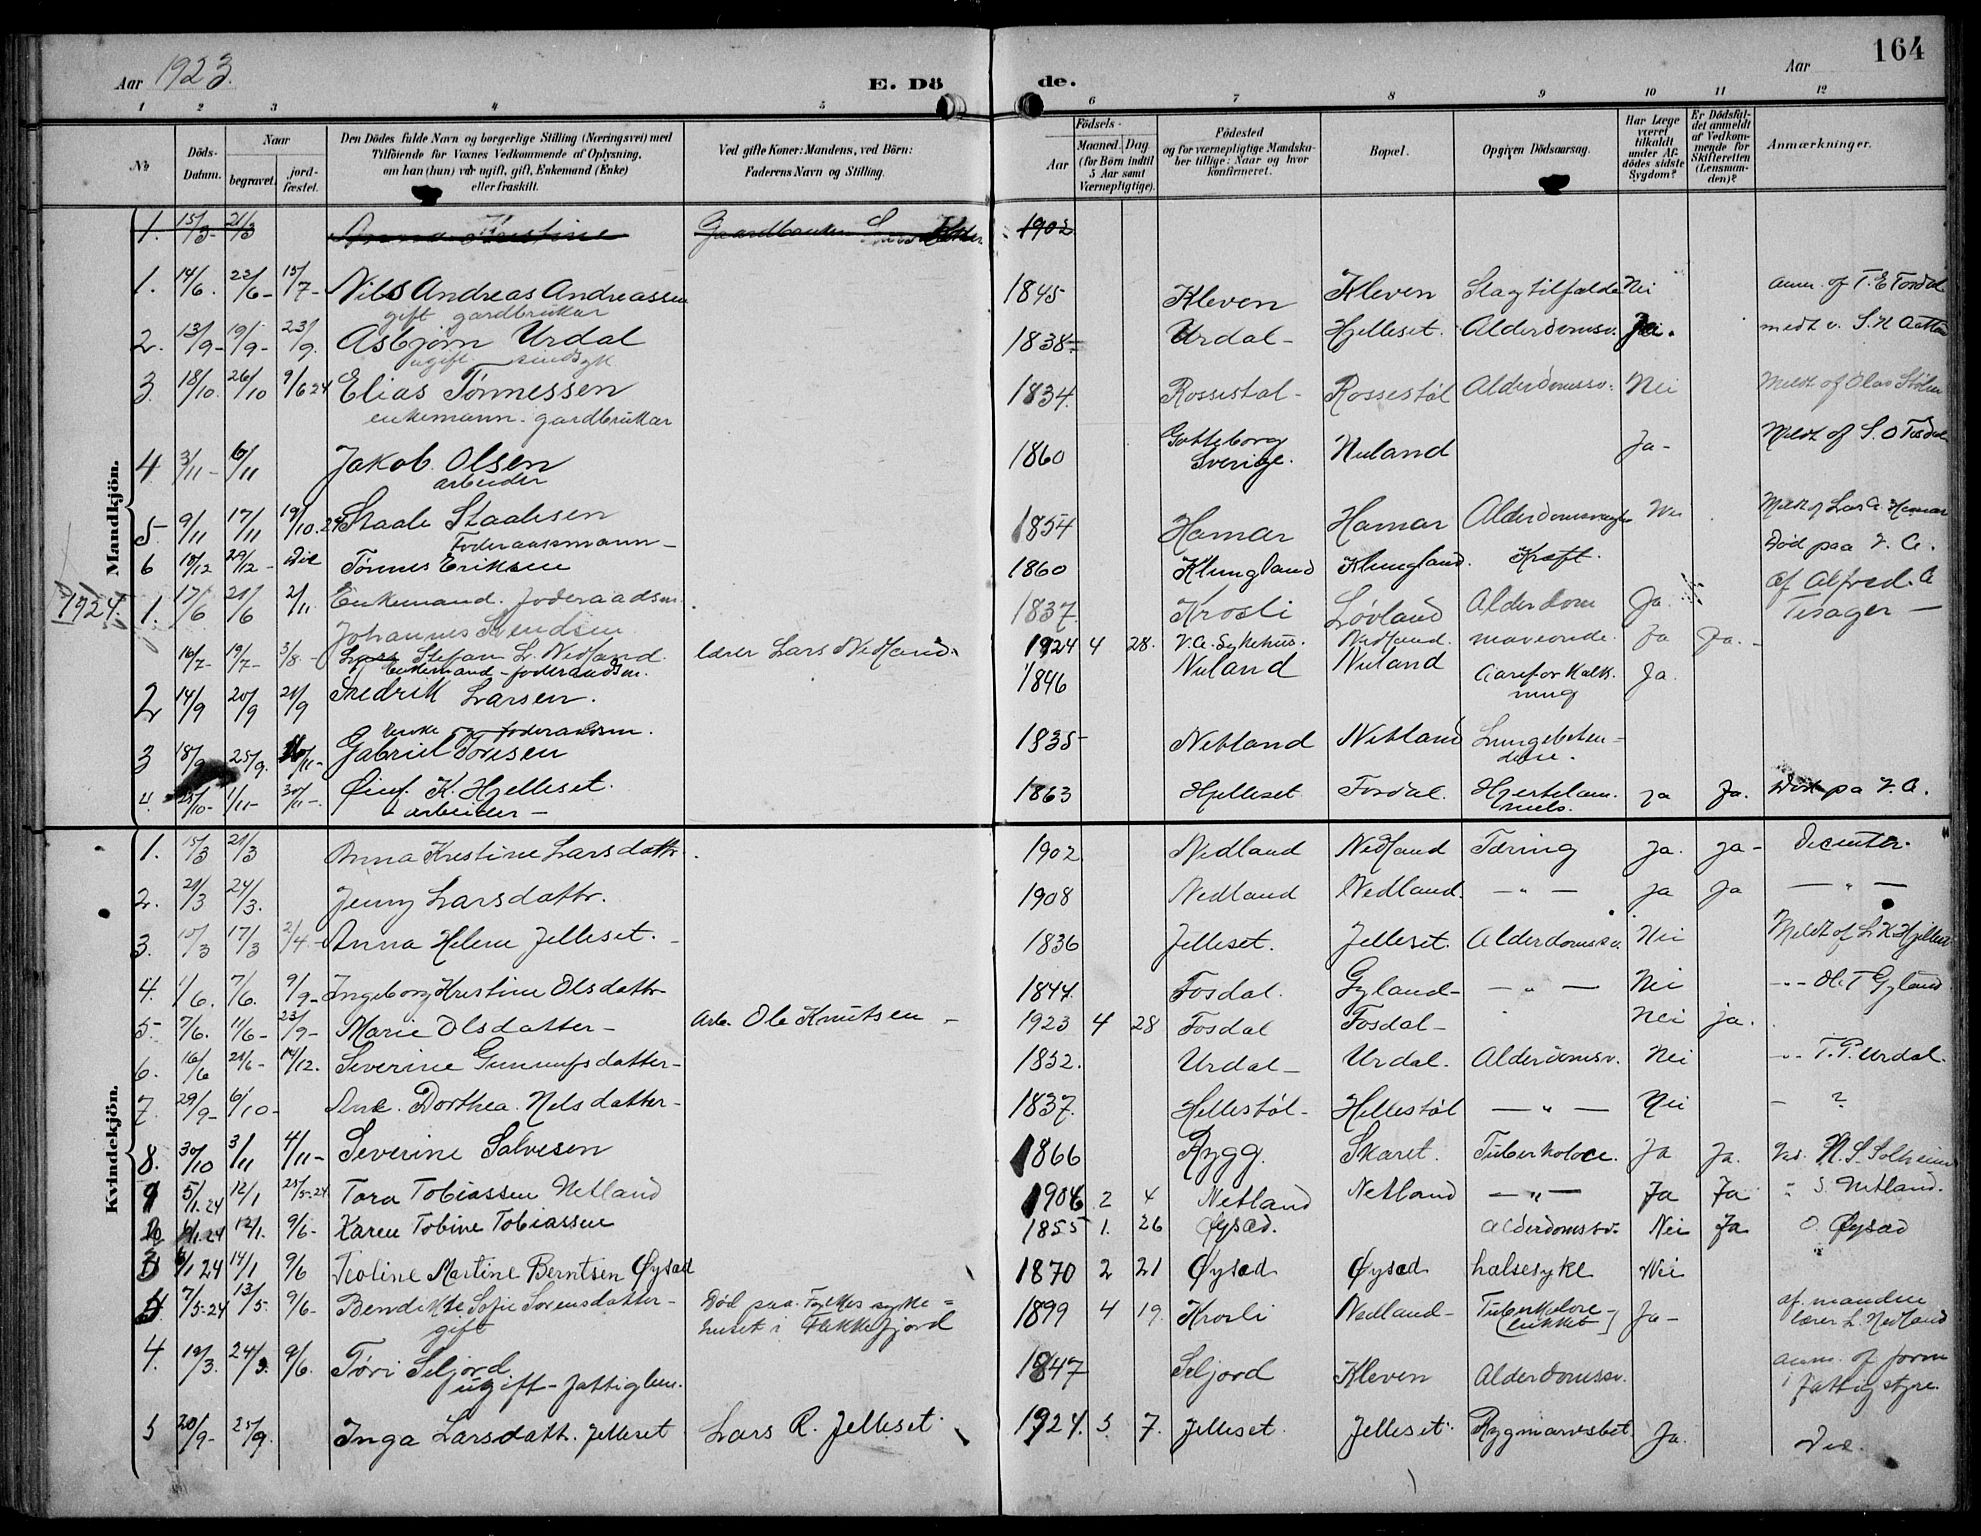 164
Aar 1923. E. Dö de. Aar
1 2 3 4 5 6 7 8 9 10 11 12
No
Döds-Datum.
Naar
begravet. jord-fæstet.
Den Dödes fulde Navn og borgerlige Stilling (Næringsvei) med
Tilföiende for Voxnes Vedkommende af Oplysning,
om han (hun) var ugift, gift, Enkemand (Enke)
eller fraskilt.
Ved gifte Koner: Mandens, ved Börn:
Faderens Navn og Stilling.
Födsels-
Aar Maaned. Dag
(for Börn indtil
5 Aar samt
Værnepligtige).
Födested
og for værnepligtige Mandska-
ber tillige: Naar og hvor
konfirmeret.
Bopæl.
Opgiven Dödsaarsag.
Har Læge
været
tilkaldt
under Af-
dödes sidste
Sygdom?
Er Dödsfal-
det anmeldt
af Vedkom-
mende for
Skifteretten
(Lensman-
den)?
Anmærkninger.
Mandkjön.
1. 15/3- 21/3 Anna Kristine Gaardbruker 1902
1. 14/6. 22/6- 15/7- Nils Andreas Andreassen 1845 Kleven Kleven Slagtilfælde Nei anm. af T. E. Fosdal
gift gardbrukar
2. 13/9- 19/9- 23/9. Asbjørn Urdal 1838- Urdal- Hjelleset. Alderdomsv. Ja. meldt v. S. N.
ugift sindsyk
3. 18/10. 26/10 9/6 24 Elias Tønnessen 1834. Rossestøl- Rossestøl Alderdomssv. Nei Meldt af Olav Stølen
enkemann- gardbrukar
4 3/11- 10/11 Jakob Olsen 1860 Gotteborg Sverige. Nuland Ja- Meldt af S. O. Fosdal
arbeider
5- 9/11 17/11 19/10.24 Staale Staalesen 1854 Hamar Hamar Nei Meldt af Lars A. Hamar
Foderaadsmann-
6 18/12 29/12- Tønnes Eriksen 1860 Klungland Klungland. Kræft. Død paa V. A.
1924.
1. 17/6 21/6 2/11 Enkemand. foderaadsm. 1837. Krosli Løvland Alderdom Ja. af Alfred. A Tisager-
Johannes Svendsen
16/7- 19/7- 3/8- Stefan L. Nedland. lærer Lars Nedland. 1924 4 28. V. A. Sykehus. Nedland. maveonde. Ja Ja.-
Enkemand- foderaadsm.
2 14/9 20/9 21/9 Fredrik Larsen. 1846 Nuland Nuland Aareforkalk-ning Ja.
Enke og foderaadsm.
3 18/9 25/9. Gabriel Toresen 1835- Netland Netland Lungebeten-delse.
4. 25/10- 1/11- 30/11-. K. Hjelleset. 1863 Hjelleset Fosdal. Hjertelam-melse. Ja Ja. Død pa V. A.
- arbeider-
Kvindekjön.
1. 15/3 21/3 Anna Kristine Larsdattr. 1902 Nedland Nedland Tæring Ja. Ja-
2. 21/3 24/3. Jenny Larsdattr. 1908 Nedland Nedland. — " — Ja Ja — " —
3. 15/3 17/3 2/4.- Anna Helene Jelleset.- 1836 Jelleset. Jelleset. Alderdomssv. Nei Meldt af L. K. Hjelleset
4. 1/6. 7/6. 9/9- Ingeborg Kristine Olsdattr- 1844. Fosdal. Gyland- — " — Nei -"- H. T. Gyland
5- 7/6. 11/6- 23/9- Marie Olsdatter- Arb. Ole Knutsen- 1923 4 28 Fosdal Fosdal- Nei ja.
6. 16/6 21/6- 14/12. Severine Gunnufsdatter- 1852. Urdal- Urdal. Alderdomsv. Nei -"- T. P. Urdal.
7. 29/9- 6/10- Ane. Dorthea. Nelsdatter- 1837. Hellestøl- Hellestøl — " — Nei - ?
8. 30/10 3/11 4/11- Severine Salvesen 1866 Rygg. Skaret. Tuberkolose. Ja Ja. Ved. N. S. Solheim
9 5/1.24 12/1 25/5-24 Tora Tobiassen Netland 1906 2 4 Netland Netland — " — Ja Ja " S. Netland.
10 6/1.24 12/1. 9/6- Karen Tobine Tobiassen 1855 1. 26 Øysæd. Alderdomssv. Nei Ja O. Øysæd
3 8/1 24 14/1 9/6 Teoline Martine Berntsen Øysæd 1870 2 21 Øysæd Øysæd halsesyke Nei
7/5-24 13/5. 9/6- Bendikte Sofie Sørensdatter- Død paa. Fylkes syke= 1899 4 19. Krosli Nedland- Tuberkulose- Ja- af. manden
gift huset i Flekkefjord lærer L. Nedland
4. 19/3. 24/3. 9/6. Tøri Seljord 1847 Seljord Kleven Alderdomssv. anm. af form
ugift- fattiglem. i fattigstyre.
5 20/9- 25/9. Inga Larsdattr. Jelleset Lars R. Jelleset. 1924. 5. 7. Jelleset. Jelleset. Rygmarvsbet Ja.